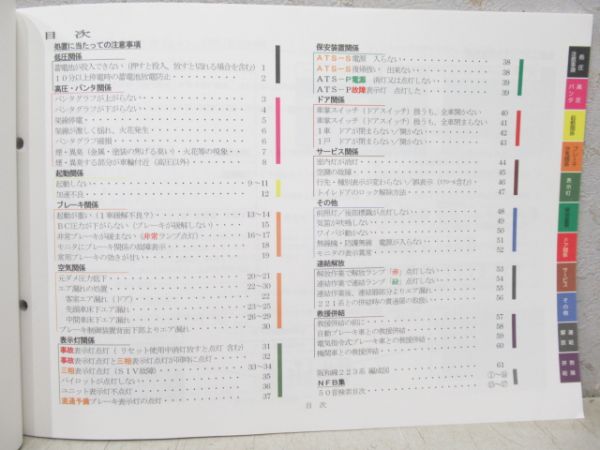 目　次
処置に当たっての注意事項
低圧関係
蓄電池が投入できない（押すと投入、放すと切れる場合を含む） 1
10分以上停電時の蓄電池放電防止 2
高圧・パンタ関係
パンタグラフが上がらない 3
パンタグラフが下がらない 4
架線停電 5
架線が激しく揺れ、火花発生 6
パンタグラフ破損 6
煙・異臭（金属・塗装の焦げる臭い）・火花等の現象 7
煙・異臭する部分が車輪付近（高圧以外） 8
起動関係
起動しない 9～11
加速不良 12
ブレーキ関係
起動が重い（1車緩解不良？） 13～14
BC圧力が下がらない（ブレーキが緩解しない） 15
非常ブレーキが緩まない（非常ランプ点灯） 16～17
モニタにブレーキ関係の故障表示 18
常用ブレーキの効きが甘い 19
空気関係
元ダメ圧力低下 20～21
エア漏れの処置 22～30
客室エア漏れ（ドア） 22
先頭車床下エア漏れ 23～25
中間車床下エア漏れ 26～29
ブレーキ制御装置背面下部よりエア漏れ 30
表示灯関係
事故表示灯点灯（リセット使用中消灯放すと点灯 含む） 31
事故表示灯点灯と三相表示灯点灯が同時に点灯 32
三相表示灯点灯（SIV故障） 33～34
パイロットが点灯しない 35
ユニット表示灯不点灯 36
直通予備ブレーキ表示灯の点灯 37
保安装置関係
ATS-S電源　入らない 38
ATS-S復帰扱い　出来ない 38
ATS-P電源　消灯又は点灯しない 39
ATS-P故障表示灯　点灯した 39
ドア関係
車掌スイッチ（ドアスイッチ）扱うも、全車開かない 40
車掌スイッチ（ドアスイッチ）扱うも、全車閉まらない 41
1車　ドアが閉まらない/開かない 42
1戸　ドアが閉まらない/開かない 43
サービス関係
室内灯が消灯 44
空調の故障 45
行先・種別表示が変わらない/誤表示
トイレドアのロック解放方法 47
その他
前照灯/後部標識が点灯しない 48
気笛が吹鳴しない 49
ワイパが動かない 50
無線機・防護無線　電源が入らない 51
モニタの表示異常 52
連結解放
解放作業で解放ランプ「赤」点灯しない 53
連結作業で連結ランプ「緑」点灯しない 54
連結作業後、連結器部分よりエア漏れ 55
221系との併結時の貫通扉の取扱い 56
救援併結
救援併結の前に 57
自動ブレーキ車との救援併結 58
電気指令式ブレーキ車との救援併結
機関車との救援併結
阪和線223系 編成図 61
NFB集
50音検索目次
目　次
低圧
高圧
パンタ
起動関係
ブレーキ
空気関係
表示灯
ドア関係
サービス
その他
連結
解放
救援
併結